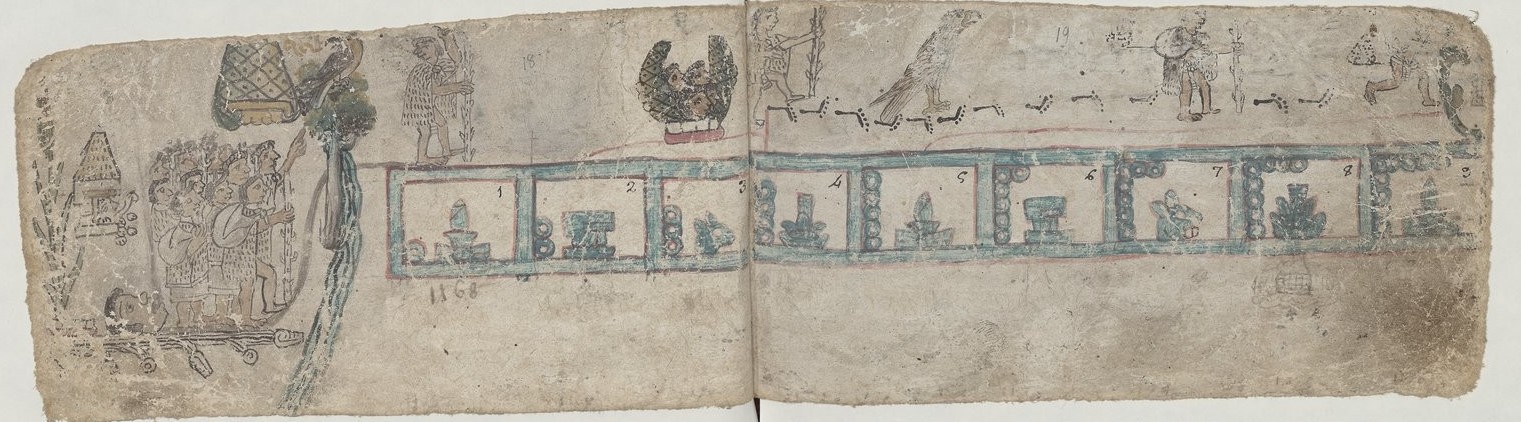 18
19
1 2 3 4 5 6 7 8 9
1168